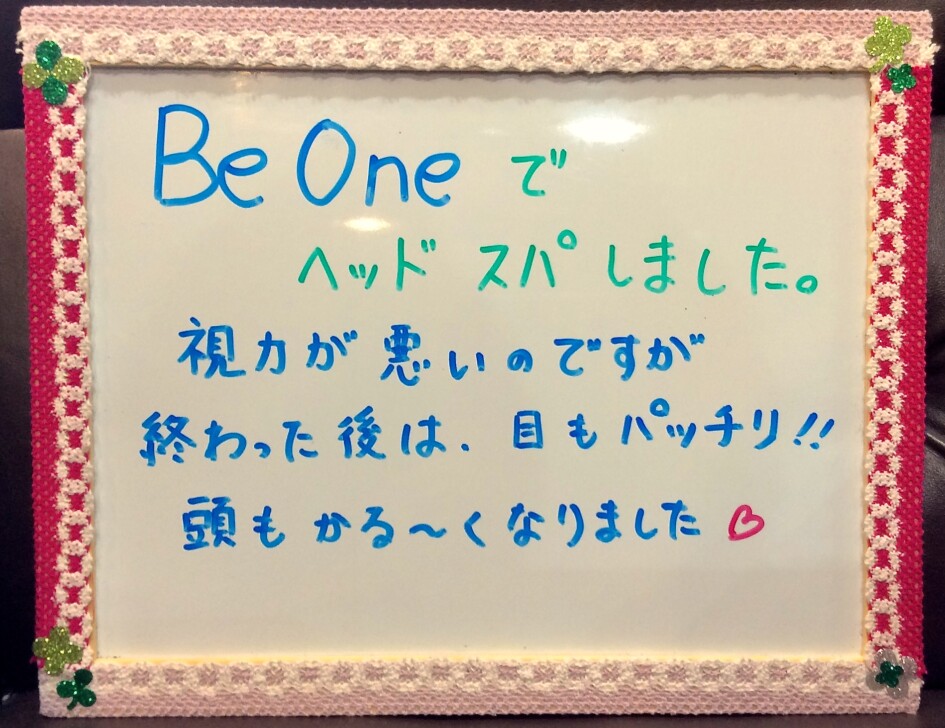 Be One で
ヘッド スパしました。
視力が悪いのですが
終わった後は、目もパッチリ!!
頭もかる〜くなりました♡